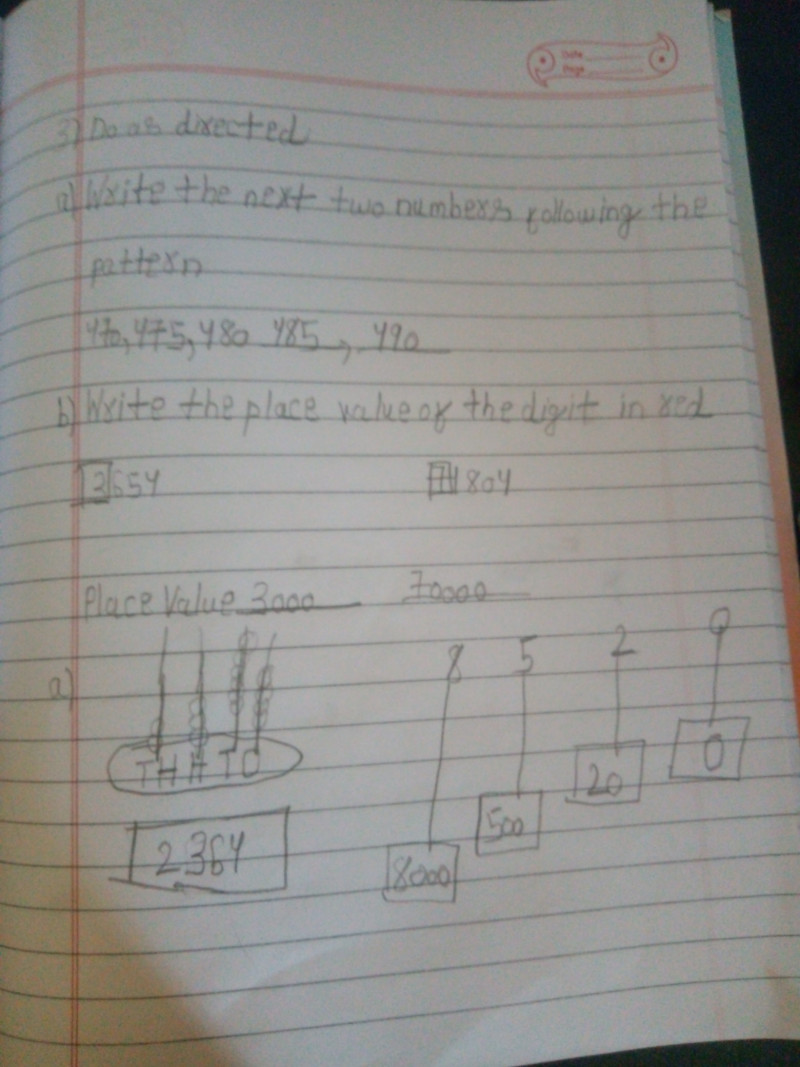 Date
Page
3) Do as directed
a) Write the next two numbers following the
pattern
470, 475, 480 485, 490
b) Write the place value of the digit in red
3654 1804
Place Value 3000 70000
a)
8 5 2 0
TH H T O
2364
8000 500 20 0